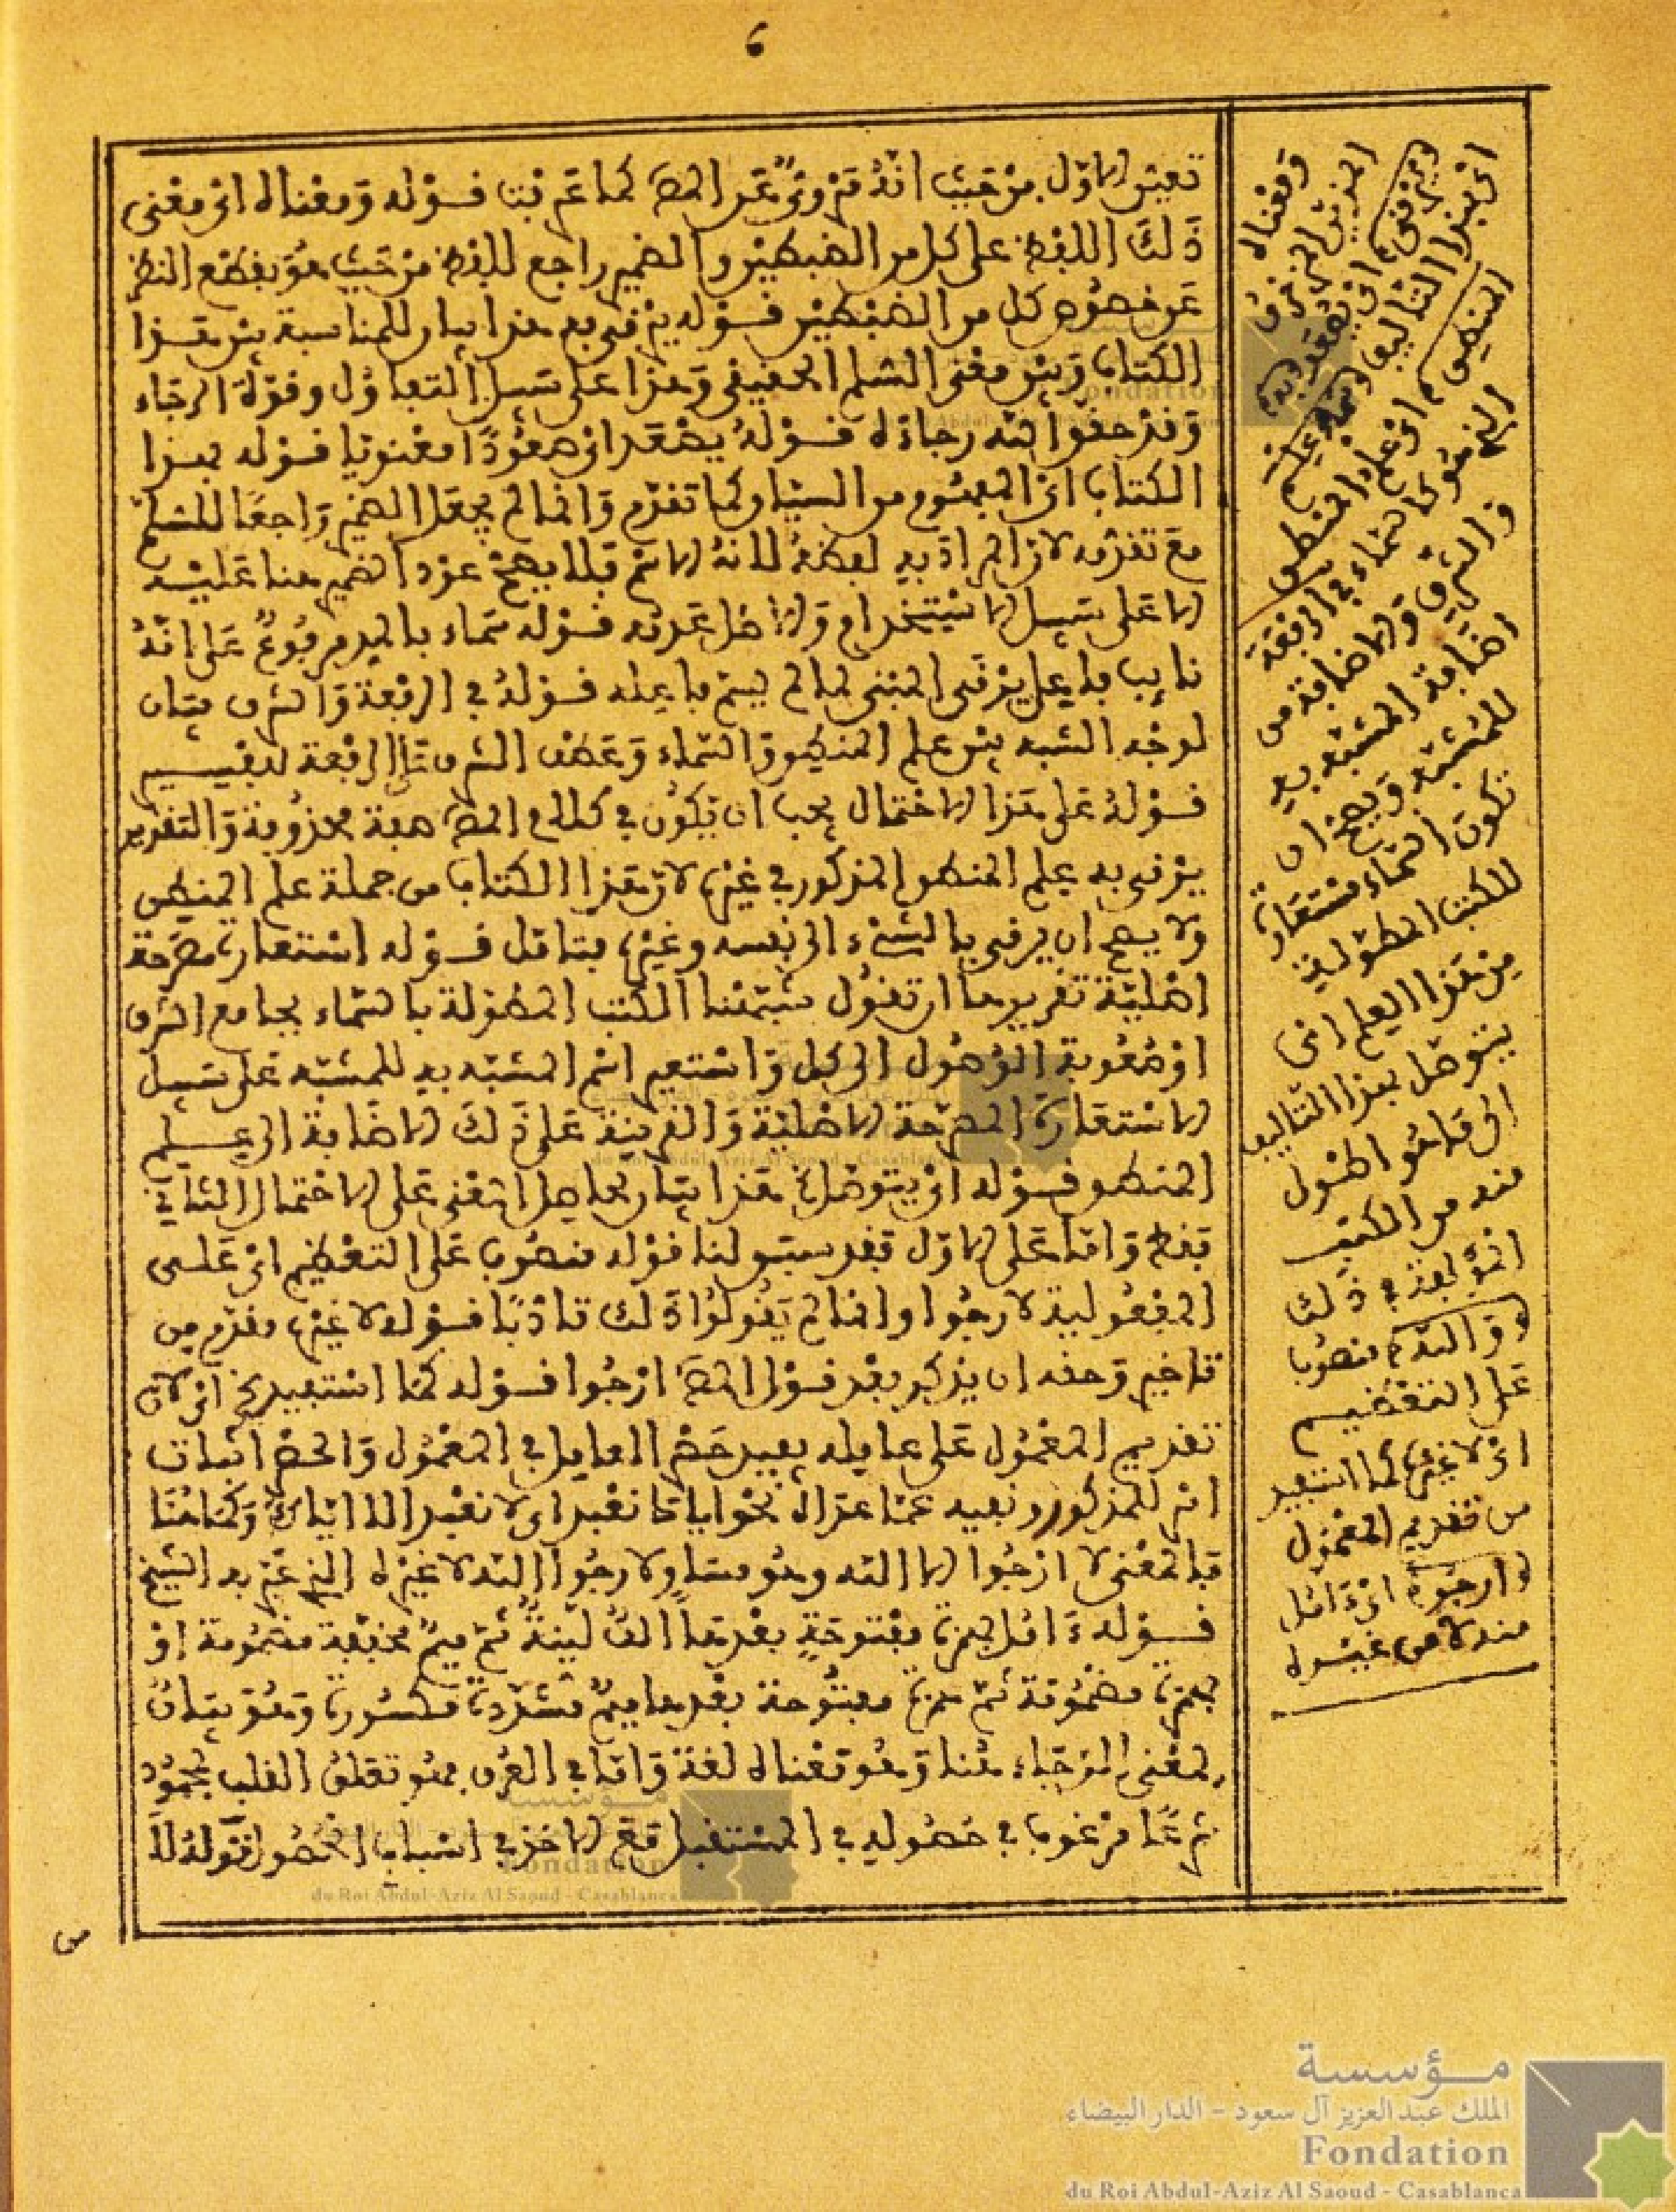 6
تعين الاول من حيث انه مروي عن المص كما عرفت قوله ومعناه اي معنى
ذلك اللفظ على كل من الضبطين والضمير راجع للفظ من حيث هو بقطع النظر
عن خصوص كل من الضبطين قوله يرقى به هذا بيان للمناسبة بين هذا
الكتاب وبين معنى السلم الحقيقي وهذا على سبيل التفاؤل وقوة الرجاء
وقد حقق الله رجاءه قوله يصعد اي صعودا معنويا قوله بهذا
الكتاب اي المفهوم من السياق كما تقدم وانما لم يجعل الضمير راجعا للسلم
مع تقدمه لان المراد به لفظه لانه اسم فلا يصح عود الضمير هنا عليه
الا على سبيل الاستخدام والاصل عدمه قوله سماء بالمد مرفوع على انه
نايب فاعل يرقى المبني لما لم يسم فاعله قوله في الرفعة والشرف بيان
لوجه الشبه بين علم المنطق والسماء وعطف الشرف على الرفعة للتفسير
قوله على هذا الاحتمال يجب ان يكون في كلام المص صفة محذوفة والتقدير
يرقى به علم المنطق المذكور في غيره لان هذا الكتاب من جملة علم المنطق
ولا يصح ان يرقى بالشيء الى نفسه وغيره فتامل قوله استعارة مصرحة
اصلية تقريرها ان تقول شبهنا الكتب المطولة بالسماء بجامع الشرف
او صعوبة الوصول الى كل واستعير اسم المشبه به للمشبه على سبيل
الاستعارة المصرحة الاصلية والقرينة على ذلك الاضافة الى علم
المنطق قوله اي يتوصل هذا بيان لحاصل المعنى على الاحتمال الثاني
فقط واما على الاول فقد سبق لنا قوله منصوب على التعظيم اي على
المفعولية لارجوا وانما لم يقولوا ذلك تادبا قوله لا غيره مقدم من
تاخير وحقه ان يذكر بعد قول المص ارجوا قوله كما استفيد الخ اي لان
تقديم المعمول على عامله يفيد حصر العامل في المعمول والحصر اثبات
امر للمذكور ونفيه عما عداه نحو اياك نعبد اي لا نعبد الا اياك وكما هنا
فالمعنى لا ارجوا الا الله وهو مساو لارجوا الله لا غيره الذي عبر به الشيخ
قوله ءامل بهمزة مفتوحة بعدها الف لينة ثم ميم مخففة مضمومة او
بهمزة مضمومة ثم همزة مفتوحة بعدها ميم مشددة مكسورة وهو بيان
لمعنى الرجاء هنا وهو معناه لغة واما في العرف فهو تعلق القلب بمحمود
شرعا مرغوب في حصوله في المستقبل مع الاخذ في اسباب الحصول قوله لا
من
ومعناه
المزيين المزخرف
ويرقى اي يصعد به
اي بهذا التاليف سماء علم
المنطق اي علم المنطق
الذي هو كالسماء في الرفعة
والشرف والاضافة من
اضافة المشبه به
للمشبه ويصح ان
تكون السماء مستعارة
للكتب المطولة
من هذا العلم اي
يتوصل بهذا التاليف
الى ما هو اطول
منه من الكتب
المؤلفة في ذلك
والله منصوب
على التعظيم
اي لا غيره كما استفيد
من تقديم المعمول
وارجو اي ءامل
منه لا من غيره
مؤسسة
الملك عبد العزيز آل سعود - الدار البيضاء
Fondation
du Roi Abdul-Aziz Al Saoud - Casablanca